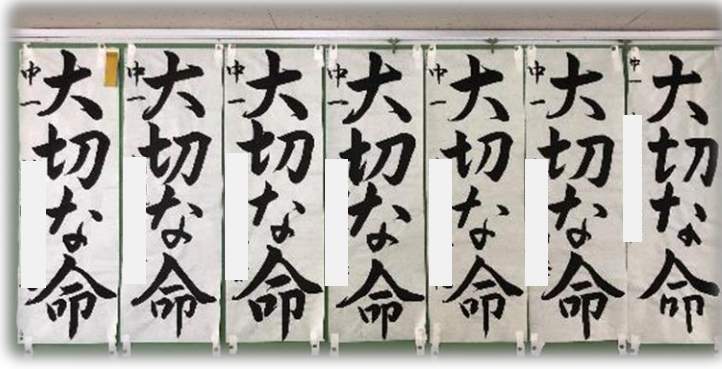 大切な命
中一
大切な命
中一
大切な命
中一
大切な命
中一
大切な命
中一
大切な命
中一
大切な命
中一